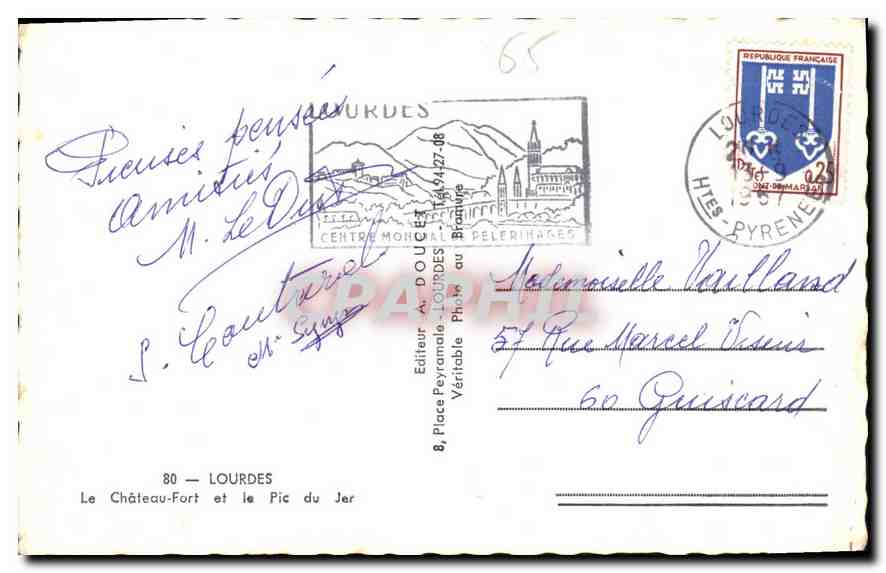 65
LOURDES
CENTRE MONDIAL DE PELERINAGES
REPUBLIQUE FRANÇAISE
0,25
MONT-DE-MARSAN
LOURDES
1967
HTES-PYRENEES
Pieuses pensées
Amitiés
M. Le Dust
S. Couturel
Editeur A. DOUCET
8, Place Peyramale - LOURDES - Tél. 94-27-08
Véritable Photo au Bromure
CPAPHIL
Mademoiselle Vailland
57 Rue Marcel
60 Guiscard
80 — LOURDES
Le Château-Fort et le Pic du Jer